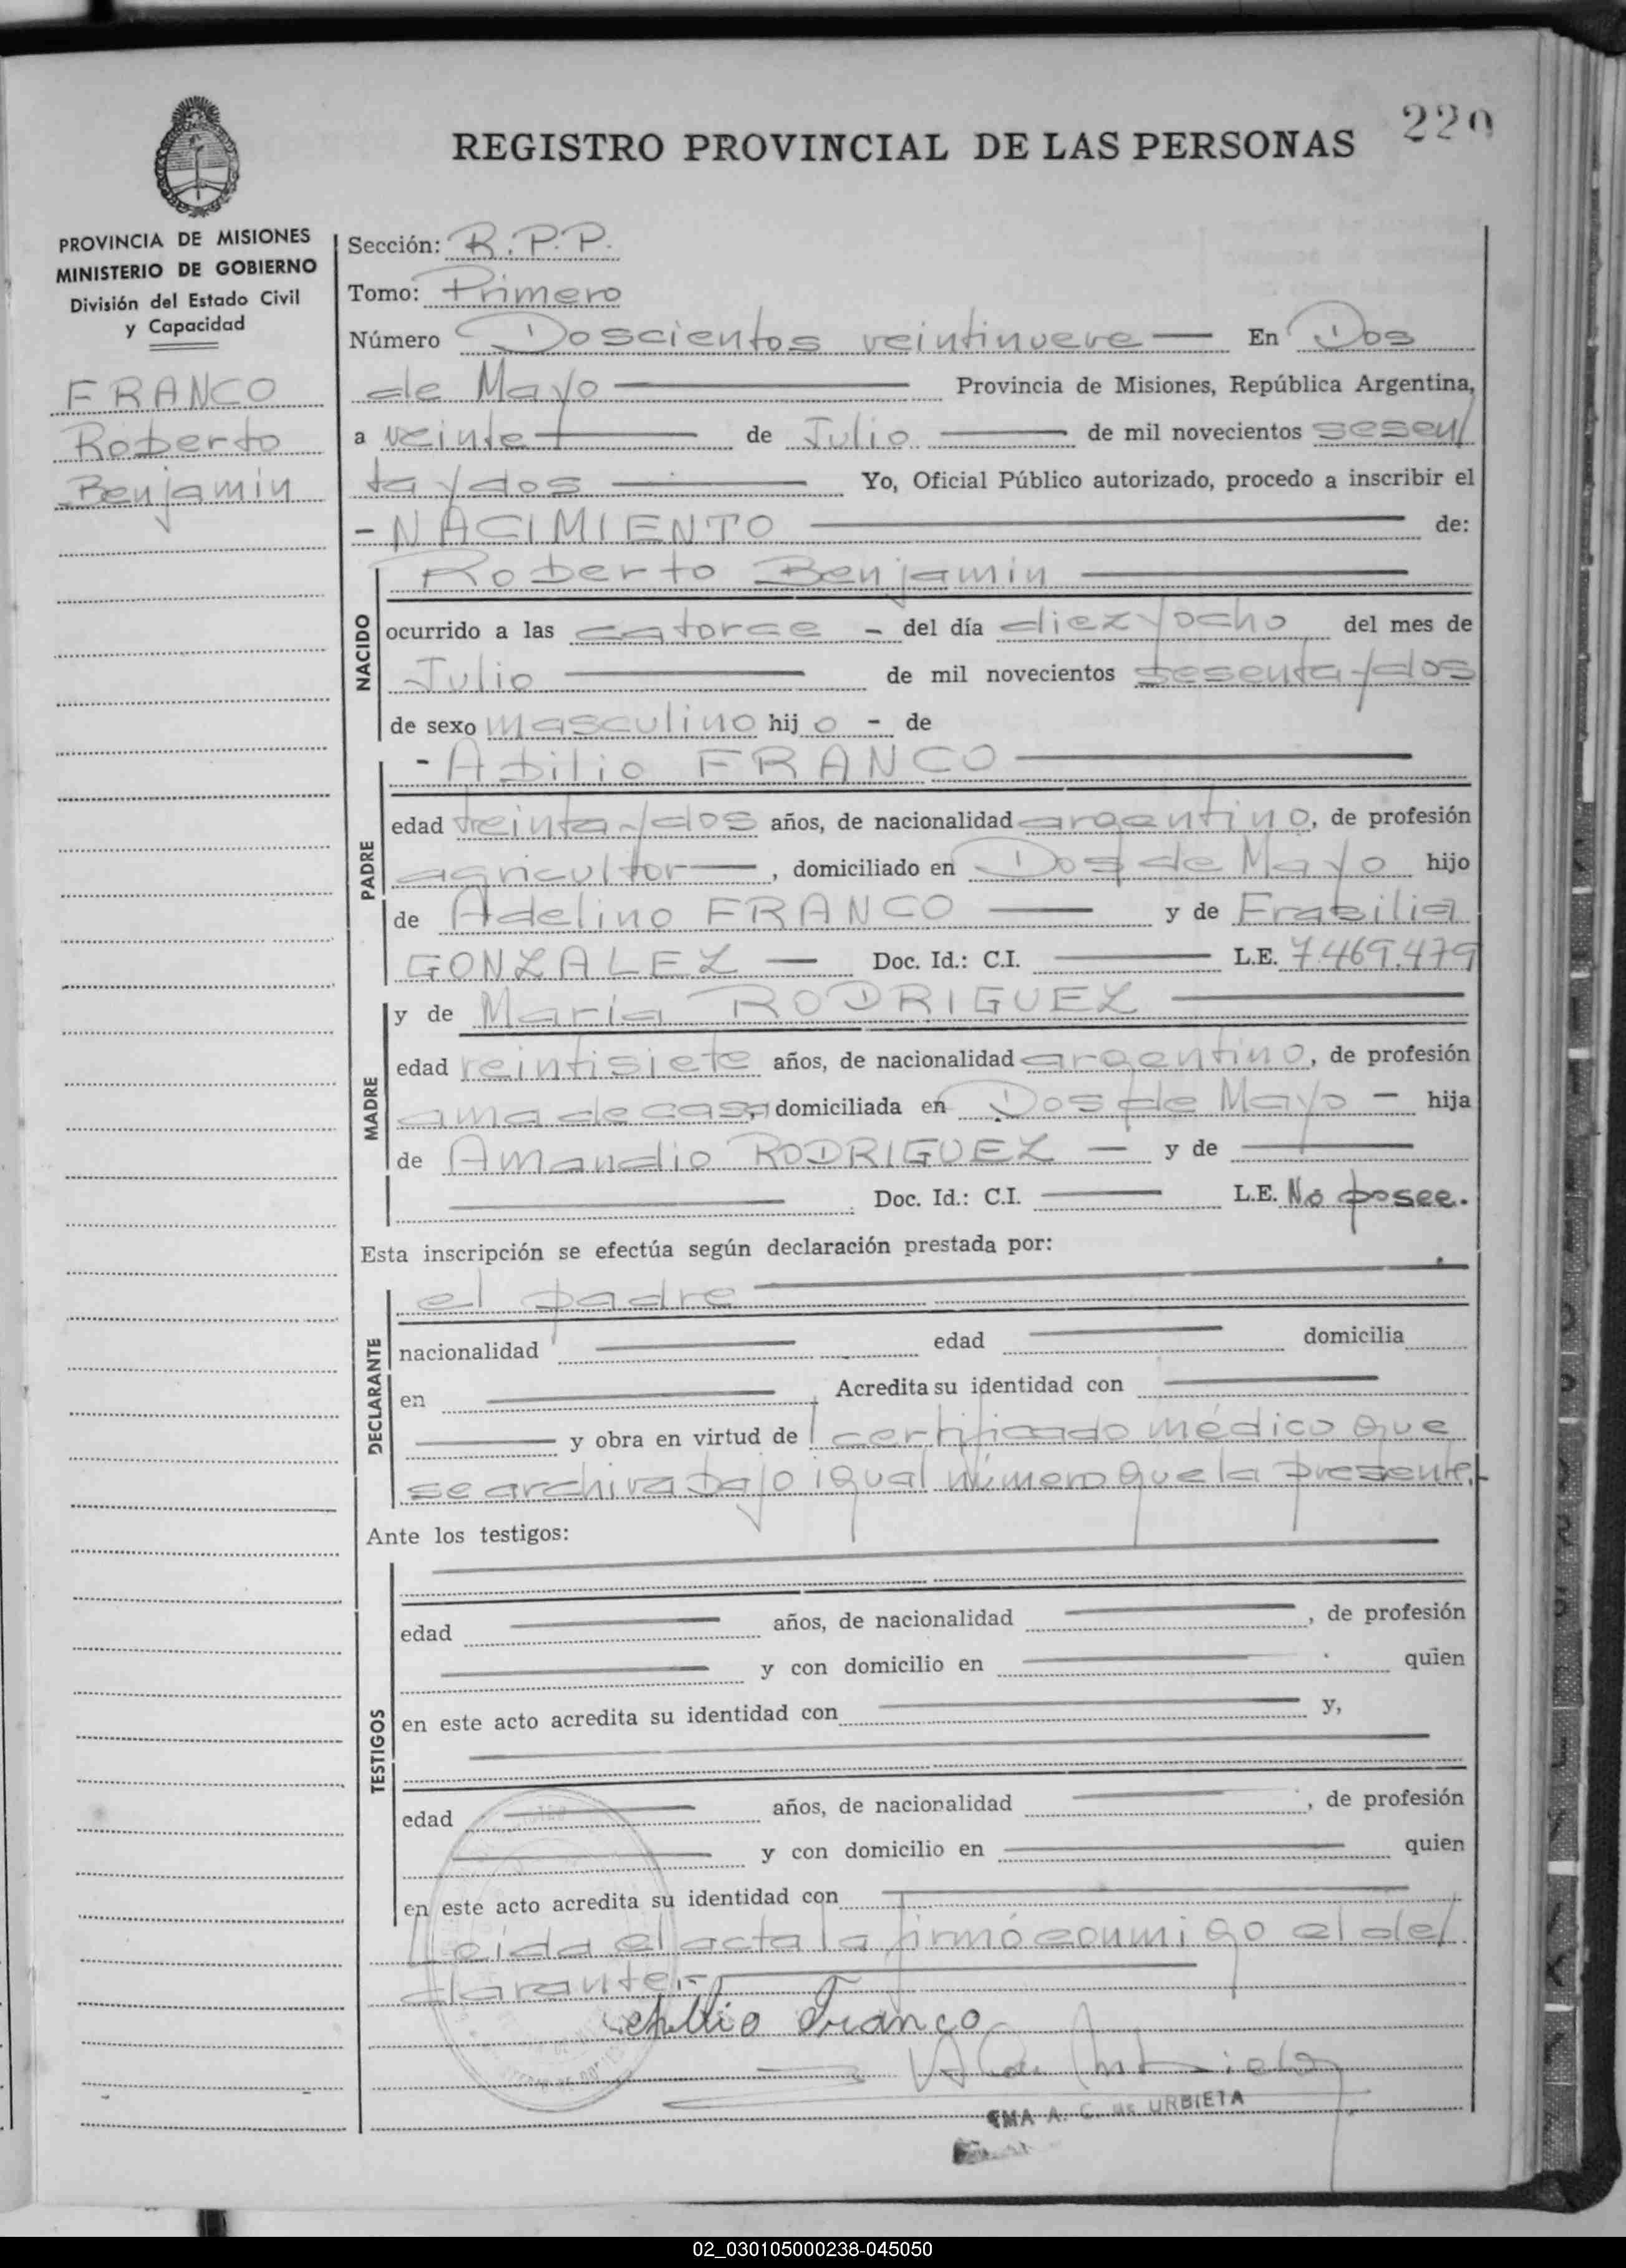 229
REGISTRO PROVINCIAL DE LAS PERSONAS
PROVINCIA DE MISIONES
MINISTERIO DE GOBIERNO
División del Estado Civil
y Capacidad
FRANCO
Roberto
Benjamin
Sección: R.P.P.
Tomo: Primero
Número Doscientos veintinueve — En Dos
de Mayo — Provincia de Misiones, República Argentina,
a veinte — de Julio — de mil novecientos sesen/
ta y dos — Yo, Oficial Público autorizado, procedo a inscribir el
- NACIMIENTO — de:
NACIDO
Roberto Benjamin —
ocurrido a las catorce - del día diez y ocho del mes de
Julio — de mil novecientos sesenta y dos
de sexo masculino hijo - de
PADRE
- Abilio FRANCO —
edad treinta y dos años, de nacionalidad argentino, de profesión
agricultor —, domiciliado en Dos de Mayo hijo
de Adelino FRANCO — y de Erasilia
GONZALEZ — Doc. Id.: C.I. — L.E. 7.469.479
MADRE
y de María RODRIGUEZ —
edad veintisiete años, de nacionalidad argentino, de profesión
ama de casa, domiciliada en Dos de Mayo — hija
de Amandio RODRIGUEZ — y de —
— Doc. Id.: C.I. — L.E. No posee.
Esta inscripción se efectúa según declaración prestada por:
DECLARANTE
el padre —
nacionalidad — edad — domicilia
en — Acredita su identidad con —
— y obra en virtud de certificado médico que
se archiva bajo igual número que la presente.-
Ante los testigos:
TESTIGOS
edad — años, de nacionalidad —, de profesión
— y con domicilio en — quien
en este acto acredita su identidad con — y,
edad — años, de nacionalidad —, de profesión
— y con domicilio en — quien
en este acto acredita su identidad con —
Leída el acta la firmó conmigo el de/
clarante.- —
Abilio Franco
A. C. de URBIETA
02_030105000238-045050